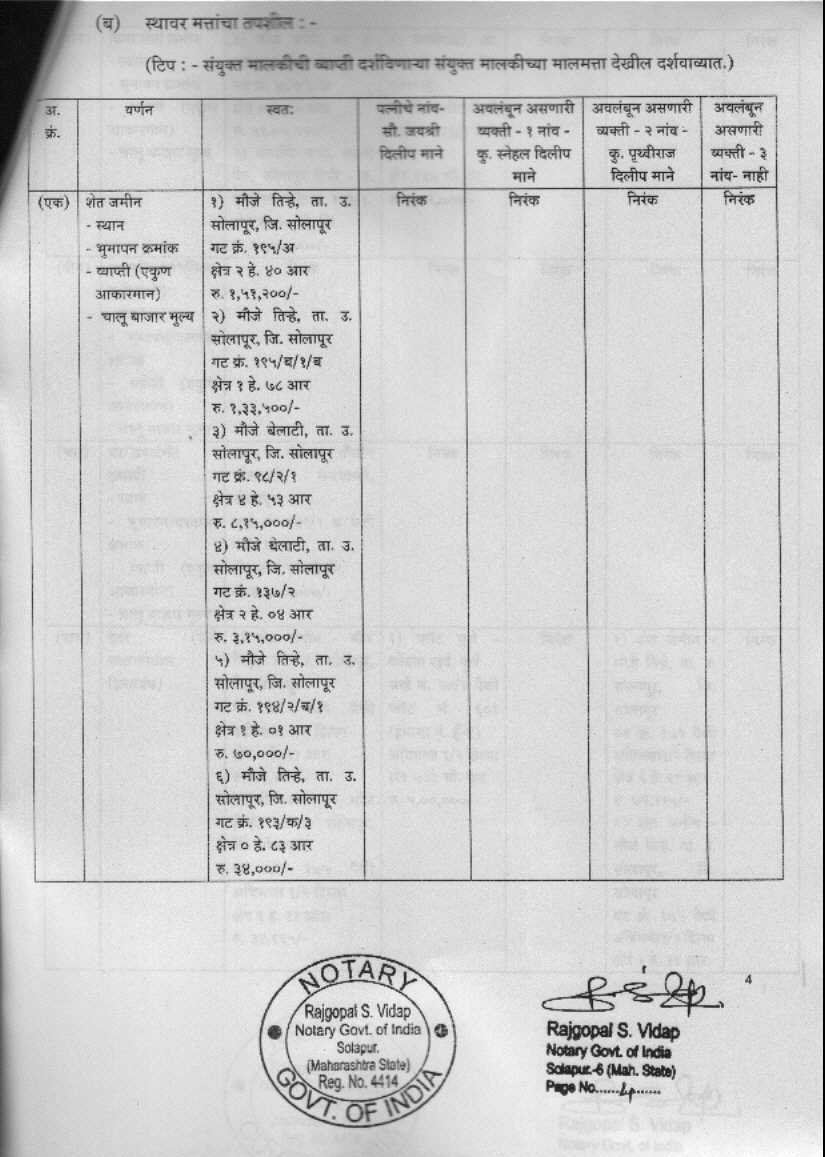 (ब) स्थावर मत्तांचा तपशील : -
(टिप : - संयुक्त मालकीची व्याप्ती दर्शविणाऱ्या संयुक्त मालकीच्या मालमत्ता देखील दर्शवाव्यात.)
अ. क्रं.
वर्णन
स्वतः
पत्नीचे नांव-
सौ. जयश्री
दिलीप माने
अवलंबून असणारी
व्यक्ती - १ नांव -
कु. स्नेहल दिलीप
माने
अवलंबून असणारी
व्यक्ती - २ नांव -
कु. पृथ्वीराज
दिलीप माने
अवलंबून
असणारी
व्यक्ती - ३
नांव- नाही
(एक)
शेत जमीन
- स्थान
- भुमापन क्रमांक
- व्याप्ती (एकुण
आकारगान)
- चालू बाजार मुल्य
१) मौजे तिऱ्हे, ता. उ.
सोलापूर, जि. सोलापूर
गट क्रं. १९५/अ
क्षेत्र २ हे. ४० आर
रु. १,५१,२००/-
२) मौजे तिऱ्हे, ता. उ.
सोलापूर, जि. सोलापूर
गट क्रं. १९५/ब/१/ब
क्षेत्र १ हे. ७८ आर
रु. १,३३,५००/-
३) मौजे बेलाटी, ता. उ.
सोलापूर, जि. सोलापूर
गट क्रं. ९८/२/१
क्षेत्र ४ हे. ५३ आर
रु. ८,१५,०००/-
४) मौजे बेलाटी, ता. उ.
सोलापूर, जि. सोलापूर
गट क्रं. १३७/२
क्षेत्र २ हे. ०४ आर
रु. ३,१५,०००/-
५) मौजे तिऱ्हे, ता. उ.
सोलापूर, जि. सोलापूर
गट क्रं. १९४/२/ब/१
क्षेत्र १ हे. ०१ आर
रु. ७०,०००/-
६) मौजे तिऱ्हे, ता. उ.
सोलापूर, जि. सोलापूर
गट क्रं. १९३/क/३
क्षेत्र ० हे. ८३ आर
रु. ३४,०००/-
निरंक
निरंक
निरंक
निरंक
NOTARY
Rajgopal S. Vidap
Notary Govt. of India
Solapur.
(Maharashtra State)
Reg. No. 4414
GOVT. OF INDIA
4
Rajgopal S. Vidap
Notary Govt. of India
Solapur.-6 (Mah. State)
Page No......4......